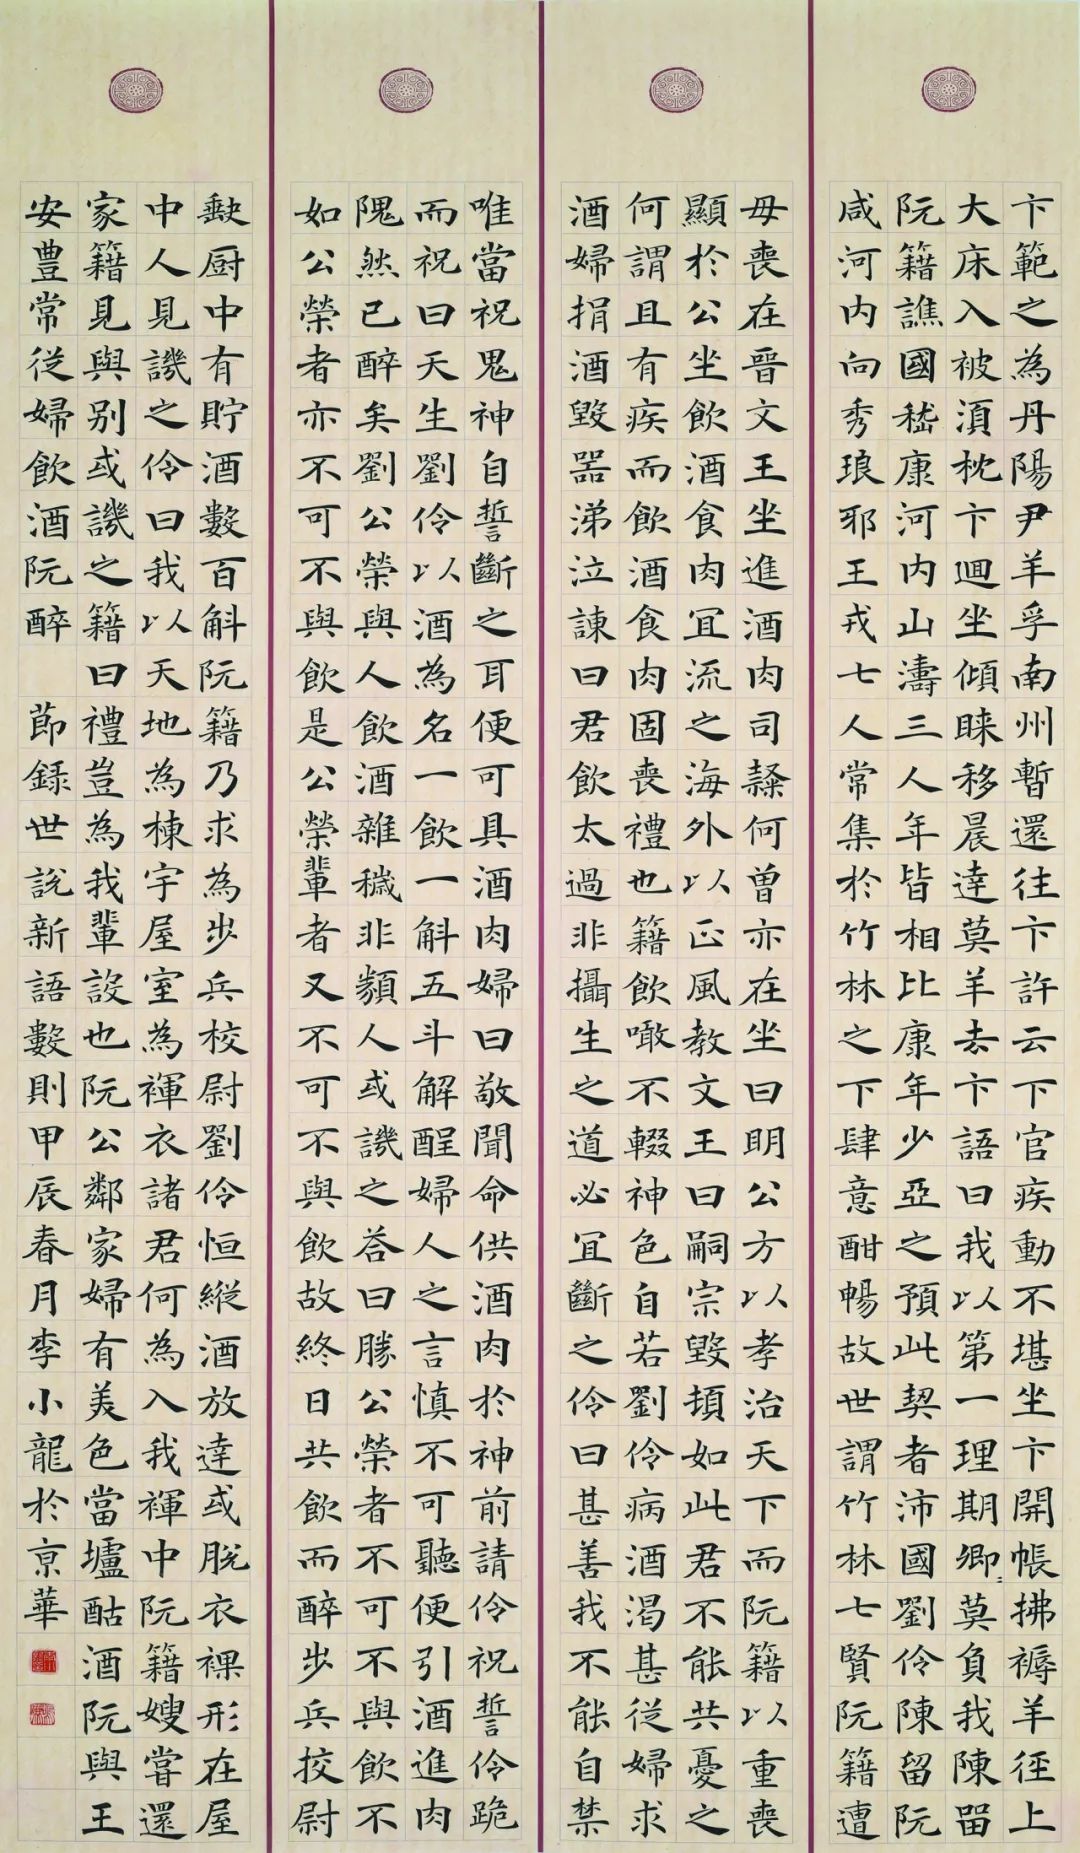 卞範之為丹陽尹羊孚南州暫還往卞許云下官疾動不堪坐卞開帳拂褥羊徑上
大床入被湏枕卞迴坐傾睞移晨逹莫羊去卞語曰我以第一理期卿莫負我陳留
阮籍譙國嵇康河内山濤三人年皆相比康年少亞之預此契者沛國劉伶陳留阮
咸河内向秀琅邪王戎七人常集於竹林之下肆意酣暢故世謂竹林七賢阮籍遭
母喪在晉文王坐進酒肉司隸何曾亦在坐曰明公方以孝治天下而阮籍以重喪
顯於公坐飲酒食肉宜流之海外以正風教文王曰嗣宗毀頓如此君不能共憂之
何謂且有疾而飲酒食肉固喪禮也籍飲噉不輟神色自若劉伶病酒渴甚從婦求
酒婦捐酒毀器涕泣諫曰君飲太過非攝生之道必宜斷之伶曰甚善我不能自禁
唯當祝鬼神自誓斷之耳便可具酒肉婦曰敬聞命供酒肉於神前請伶祝誓伶跪
而祝曰天生劉伶以酒為名一飲一斛五斗解酲婦人之言慎不可聽便引酒進肉
隗然已醉矣劉公榮與人飲酒雜穢非類人或譏之答曰勝公榮者不可不與飲不
如公榮者亦不可不與飲是公榮輩者又不可不與飲故終日共飲而醉步兵挍尉
缺厨中有貯酒數百斛阮籍乃求為步兵校尉劉伶恒縱酒放逹或脫衣裸形在屋
中人見譏之伶曰我以天地為棟宇屋室為褌衣諸君何為入我褌中阮籍嫂嘗還
家籍見與别或譏之籍曰禮豈為我輩設也阮公鄰家婦有美色當壚酤酒阮與王
安豊常從婦飲酒阮醉 節録世說新語數則甲辰春月李小龍於京華